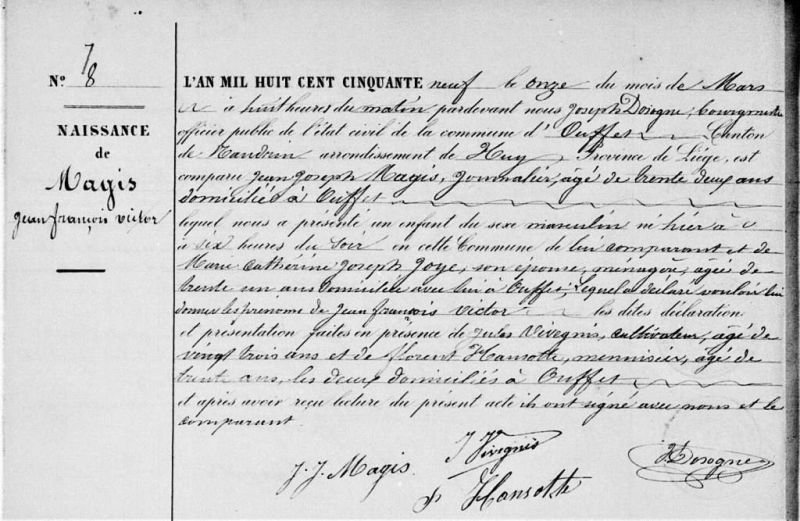 N° 78
NAISSANCE
de
Magis
jean françois victor
L'AN MIL HUIT CENT CINQUANTE neuf le onze du mois de Mars
à huit heures du matin pardevant nous Joseph Dosogne, bourgmestre
officier public de l'état civil de la commune d'Ouffet Canton
de Nandrin arrondissement de Huy Province de Liége, est
comparu Jean Joseph Magis, Journalier, âgé de trente deux ans
domicilié à Ouffet
lequel nous a présenté un enfant du sexe masculin né hier à
à six heures du soir en cette Commune de lui comparant et de
Marie Catherine Joseph Joye, son épouse, ménagère, âgée de
trente un ans domiciliée avec lui à Ouffet, lequel a déclaré vouloir lui
donner les prénoms de jean françois victor les dites déclaration
et présentation faites en présence de jules Vivegnis, cultivateur, âgé de
vingt trois ans et de florent Hansotte, menuisier, âgé de
trente ans, les deux domiciliés à Ouffet
et après avoir reçu lecture du présent acte ils ont signé avec nous et le
comparant.
J. J. Magis. J Vivegnis
Hansotte
J Dosogne